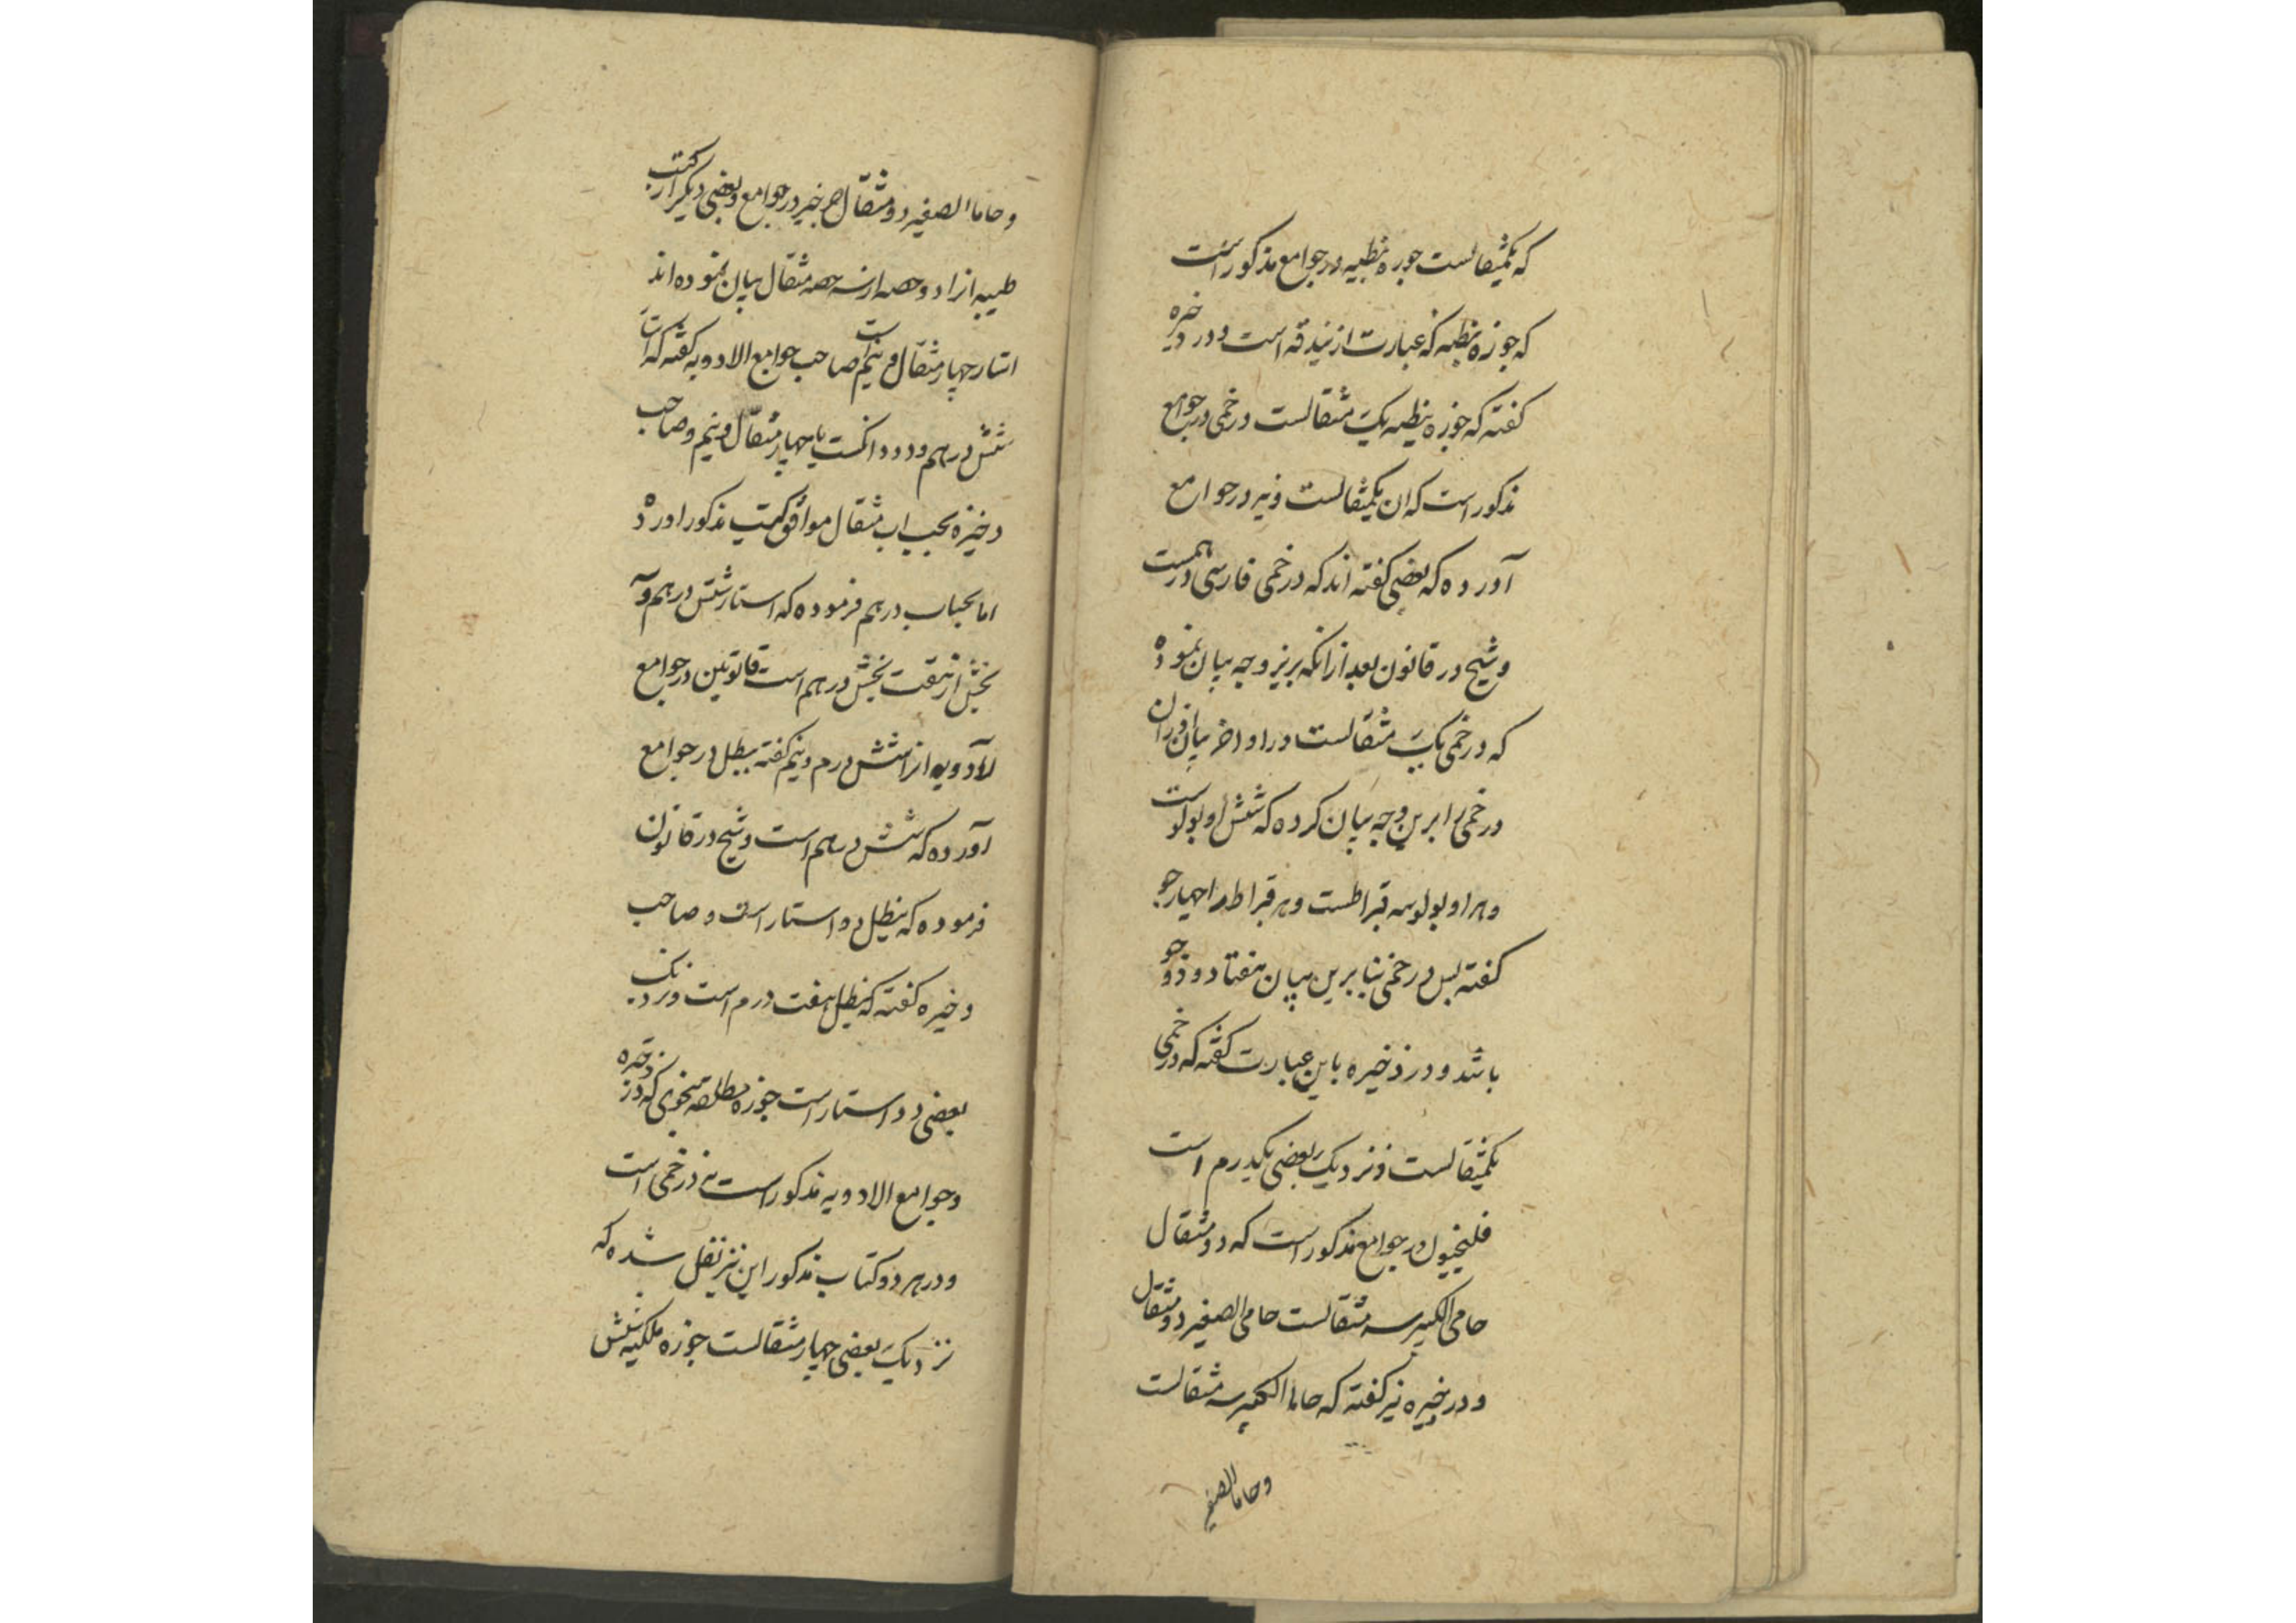 که یکمثقالست جوزه نبطیه در جوامع مذکور است
که جوزه نبطیه که عبارت از بندقه است و در ذخیره
گفته که جوزه نبطیه یک مثقالست درخمی در جوامع
مذکور است که ان یکمثقالست و نیز در جوامع
آورده که بعضی گفته اند که درخمی فارسی درهمست
و شیخ در قانون بعد از انکه برین وجه بیان نموده
که درخمی یک مثقالست در اواخر بیان اوزان
درخمی را برین وجه بیان کرده که شش اوبولو است
و هر اوبولو سه قیراطست و هر قیراط را چهار جو
گفته پس درخمی بنا برین بیان هفتاد و دو جو
باشد و در ذخیره باین عبارت گفته که درخمی
یکمثقالست و نزدیک بعضی یکدرم است
فلنجیول در جوامع مذکور است که دو مثقال
حامی الکبیر سه مثقالست حامی الصغیر دو مثقال
و در ذخیره نیز گفته که حاما الکبیر سه مثقالست
و حاما الصغیر
و حاما الصغیر دو مثقال در جوامع و بعضی دیگر از کتب
طبیه انرا دو حصه از سه حصه مثقال بیان نموده اند
استار چهار مثقال و نیم است صاحب جوامع الادویه گفته که استار
شش درهم و دو دانکست یا چهار مثقال و نیم و صاحب
ذخیره بحسب مثقال موافق کتب مذکور اورده
اما بحساب درهم فرموده که استار شش درهم و سه
بخش از هفت بخش درهم است قانوتین در جوامع
الادویه انرا شش درم و نیم گفته نیطل در جوامع
آورده که شش درهم است و شیخ در قانون
فرموده که نیطل دو استار است و صاحب
ذخیره گفته که نیطل هفت درم است و نزدیک
بعضی دو استار است جوزه مطلقه بنحوی که در ذخیره
و جوامع الادویه مذکور است نه درخمی است
و در هر دو کتاب مذکور این نیز نقل شده که
نزدیک بعضی چهار مثقالست جوزه ملکیه شش